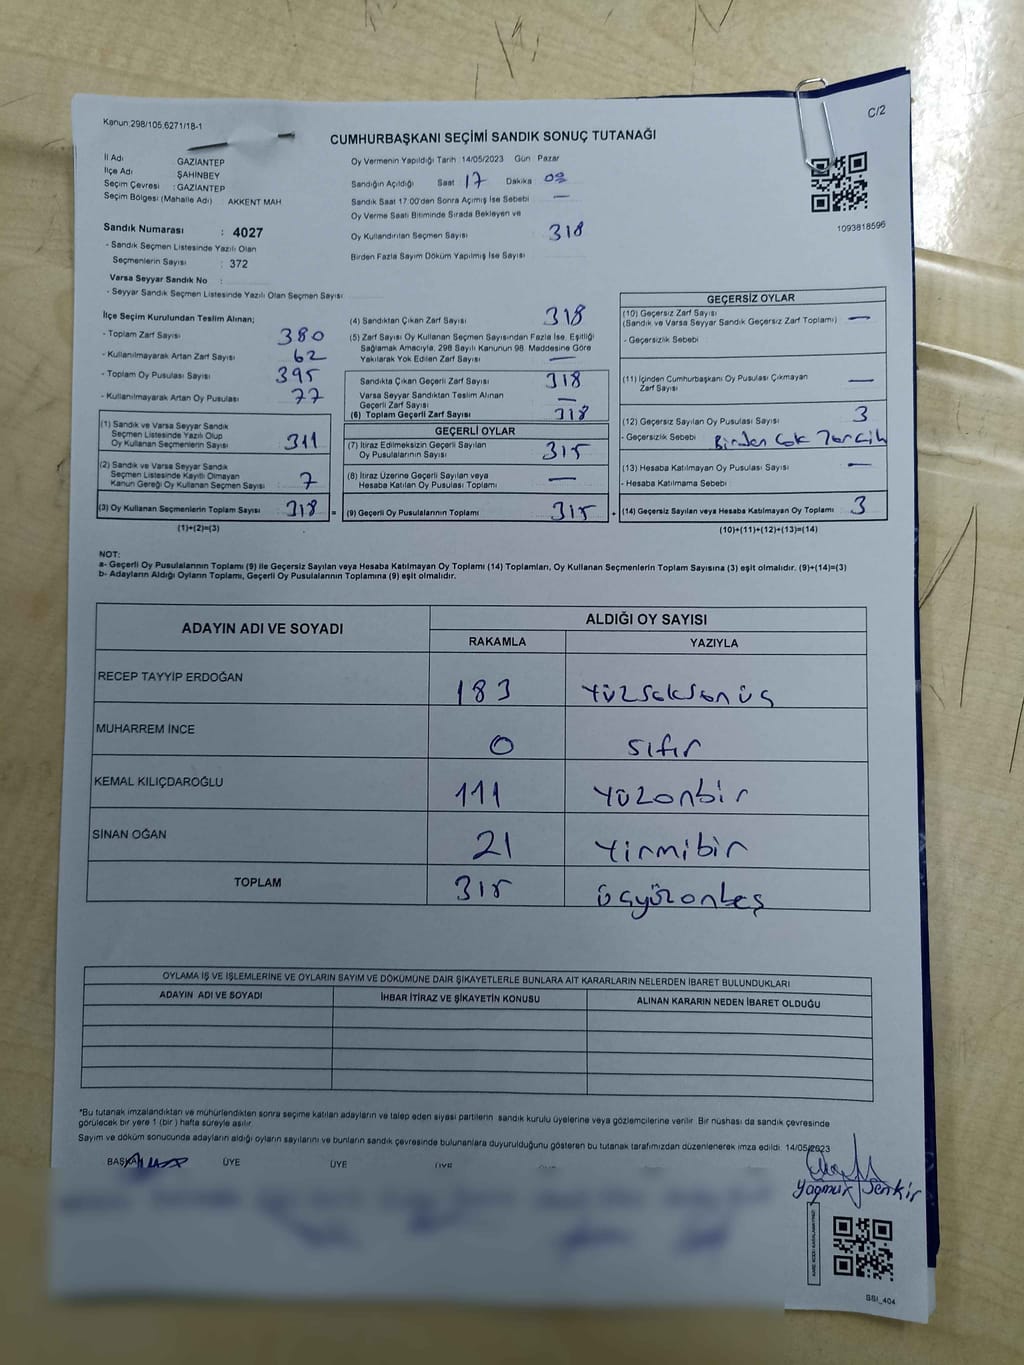 Kanun:298/105,6271/18-1
C/2
CUMHURBAŞKANI SEÇİMİ SANDIK SONUÇ TUTANAĞI
İl Adı GAZİANTEP
İlçe Adı ŞAHİNBEY
Seçim Çevresi : GAZİANTEP
Seçim Bölgesi (Mahalle Adı) AKKENT MAH
Sandık Numarası : 4027
- Sandık Seçmen Listesinde Yazılı Olan
Seçmenlerin Sayısı : 372
Varsa Seyyar Sandık No :
- Seyyar Sandık Seçmen Listesinde Yazılı Olan Seçmen Sayısı:
Oy Vermenin Yapıldığı Tarih 14/05/2023 Gün Pazar
Sandığın Açıldığı Saat 17 Dakika
Sandık Saat 17:00'den Sonra Açımış İse Sebebi —
Oy Verme Saati Bitiminde Sırada Bekleyen ve
Oy Kullandırılan Seçmen Sayısı 318
Birden Fazla Sayım Döküm Yapılmış İse Sayısı
1093818596
İlçe Seçim Kurulundan Teslim Alınan;
- Toplam Zarf Sayısı 380
- Kullanılmayarak Artan Zarf Sayısı 62
- Toplam Oy Pusulası Sayısı 395
- Kullanılmayarak Artan Oy Pusulası 77
(1) Sandık ve Varsa Seyyar Sandık
Seçmen Listesinde Yazılı Olup
Oy Kullanan Seçmenlerin Sayısı 311
(2) Sandık ve Varsa Seyyar Sandık
Seçmen Listesinde Kayıtlı Olmayan
Kanun Gereği Oy Kullanan Seçmen Sayısı 7
(3) Oy Kullanan Seçmenlerin Toplam Sayısı 318 =
(1)+(2)=(3)
(4) Sandıktan Çıkan Zarf Sayısı 318
(5) Zarf Sayısı Oy Kullanan Seçmen Sayısından Fazla İse, Eşitliği
Sağlamak Amacıyla, 298 Sayılı Kanunun 98. Maddesine Göre
Yakılarak Yok Edilen Zarf Sayısı —
Sandıkta Çıkan Geçerli Zarf Sayısı 318
Varsa Seyyar Sandıktan Teslim Alınan
Geçerli Zarf Sayısı —
(6) Toplam Geçerli Zarf Sayısı 318
GEÇERLİ OYLAR
(7) İtiraz Edilmeksizin Geçerli Sayılan
Oy Pusulalarının Sayısı 315
(8) İtiraz Üzerine Geçerli Sayılan veya
Hesaba Katılan Oy Pusulası Toplamı —
(9) Geçerli Oy Pusulalarının Toplamı 315 +
GEÇERSİZ OYLAR
(10) Geçersiz Zarf Sayısı
(Sandık ve Varsa Seyyar Sandık Geçersiz Zarf Toplamı) —
- Geçersizlik Sebebi :
(11) İçinden Cumhurbaşkanı Oy Pusulası Çıkmayan
Zarf Sayısı —
(12) Geçersiz Sayılan Oy Pusulası Sayısı 3
- Geçersizlik Sebebi : Birden Çok Tercih
(13) Hesaba Katılmayan Oy Pusulası Sayısı —
- Hesaba Katılmama Sebebi :
(14) Geçersiz Sayılan veya Hesaba Katılmayan Oy Toplamı 3
(10)+(11)+(12)+(13)=(14)
NOT:
a- Geçerli Oy Pusulalarının Toplamı (9) ile Geçersiz Sayılan veya Hesaba Katılmayan Oy Toplamı (14) Toplamları, Oy Kullanan Seçmenlerin Toplam Sayısına (3) eşit olmalıdır. (9)+(14)=(3)
b- Adayların Aldığı Oyların Toplamı, Geçerli Oy Pusulalarının Toplamına (9) eşit olmalıdır.
ADAYIN ADI VE SOYADI ALDIĞI OY SAYISI
RAKAMLA YAZIYLA
RECEP TAYYİP ERDOĞAN 183 yüzseksenüç
MUHARREM İNCE 0 sıfır
KEMAL KILIÇDAROĞLU 111 yüzonbir
SİNAN OĞAN 21 yirmibir
TOPLAM 315 üçyüzonbeş
OYLAMA İŞ VE İŞLEMLERİNE VE OYLARIN SAYIM VE DÖKÜMÜNE DAİR ŞİKAYETLERLE BUNLARA AİT KARARLARIN NELERDEN İBARET BULUNDUKLARI
ADAYIN ADI VE SOYADI İHBAR İTİRAZ VE ŞİKAYETİN KONUSU ALINAN KARARIN NEDEN İBARET OLDUĞU
*Bu tutanak imzalandıktan ve mühürlendikten sonra seçime katılan adayların ve talep eden siyasi partilerin sandık kurulu üyelerine veya gözlemcilerine verilir. Bir nüshası da sandık çevresinde
görülecek bir yere 1 (bir) hafta süreyle asılır.
Sayım ve döküm sonucunda adayların aldığı oyların sayılarını ve bunların sandık çevresinde bulunanlara duyurulduğunu gösteren bu tutanak tarafımızdan düzenlenerek imza edildi. 14/05/2023
BAŞKAN ÜYE ÜYE ÜYE
Yağmur Şenkir
SSI_404